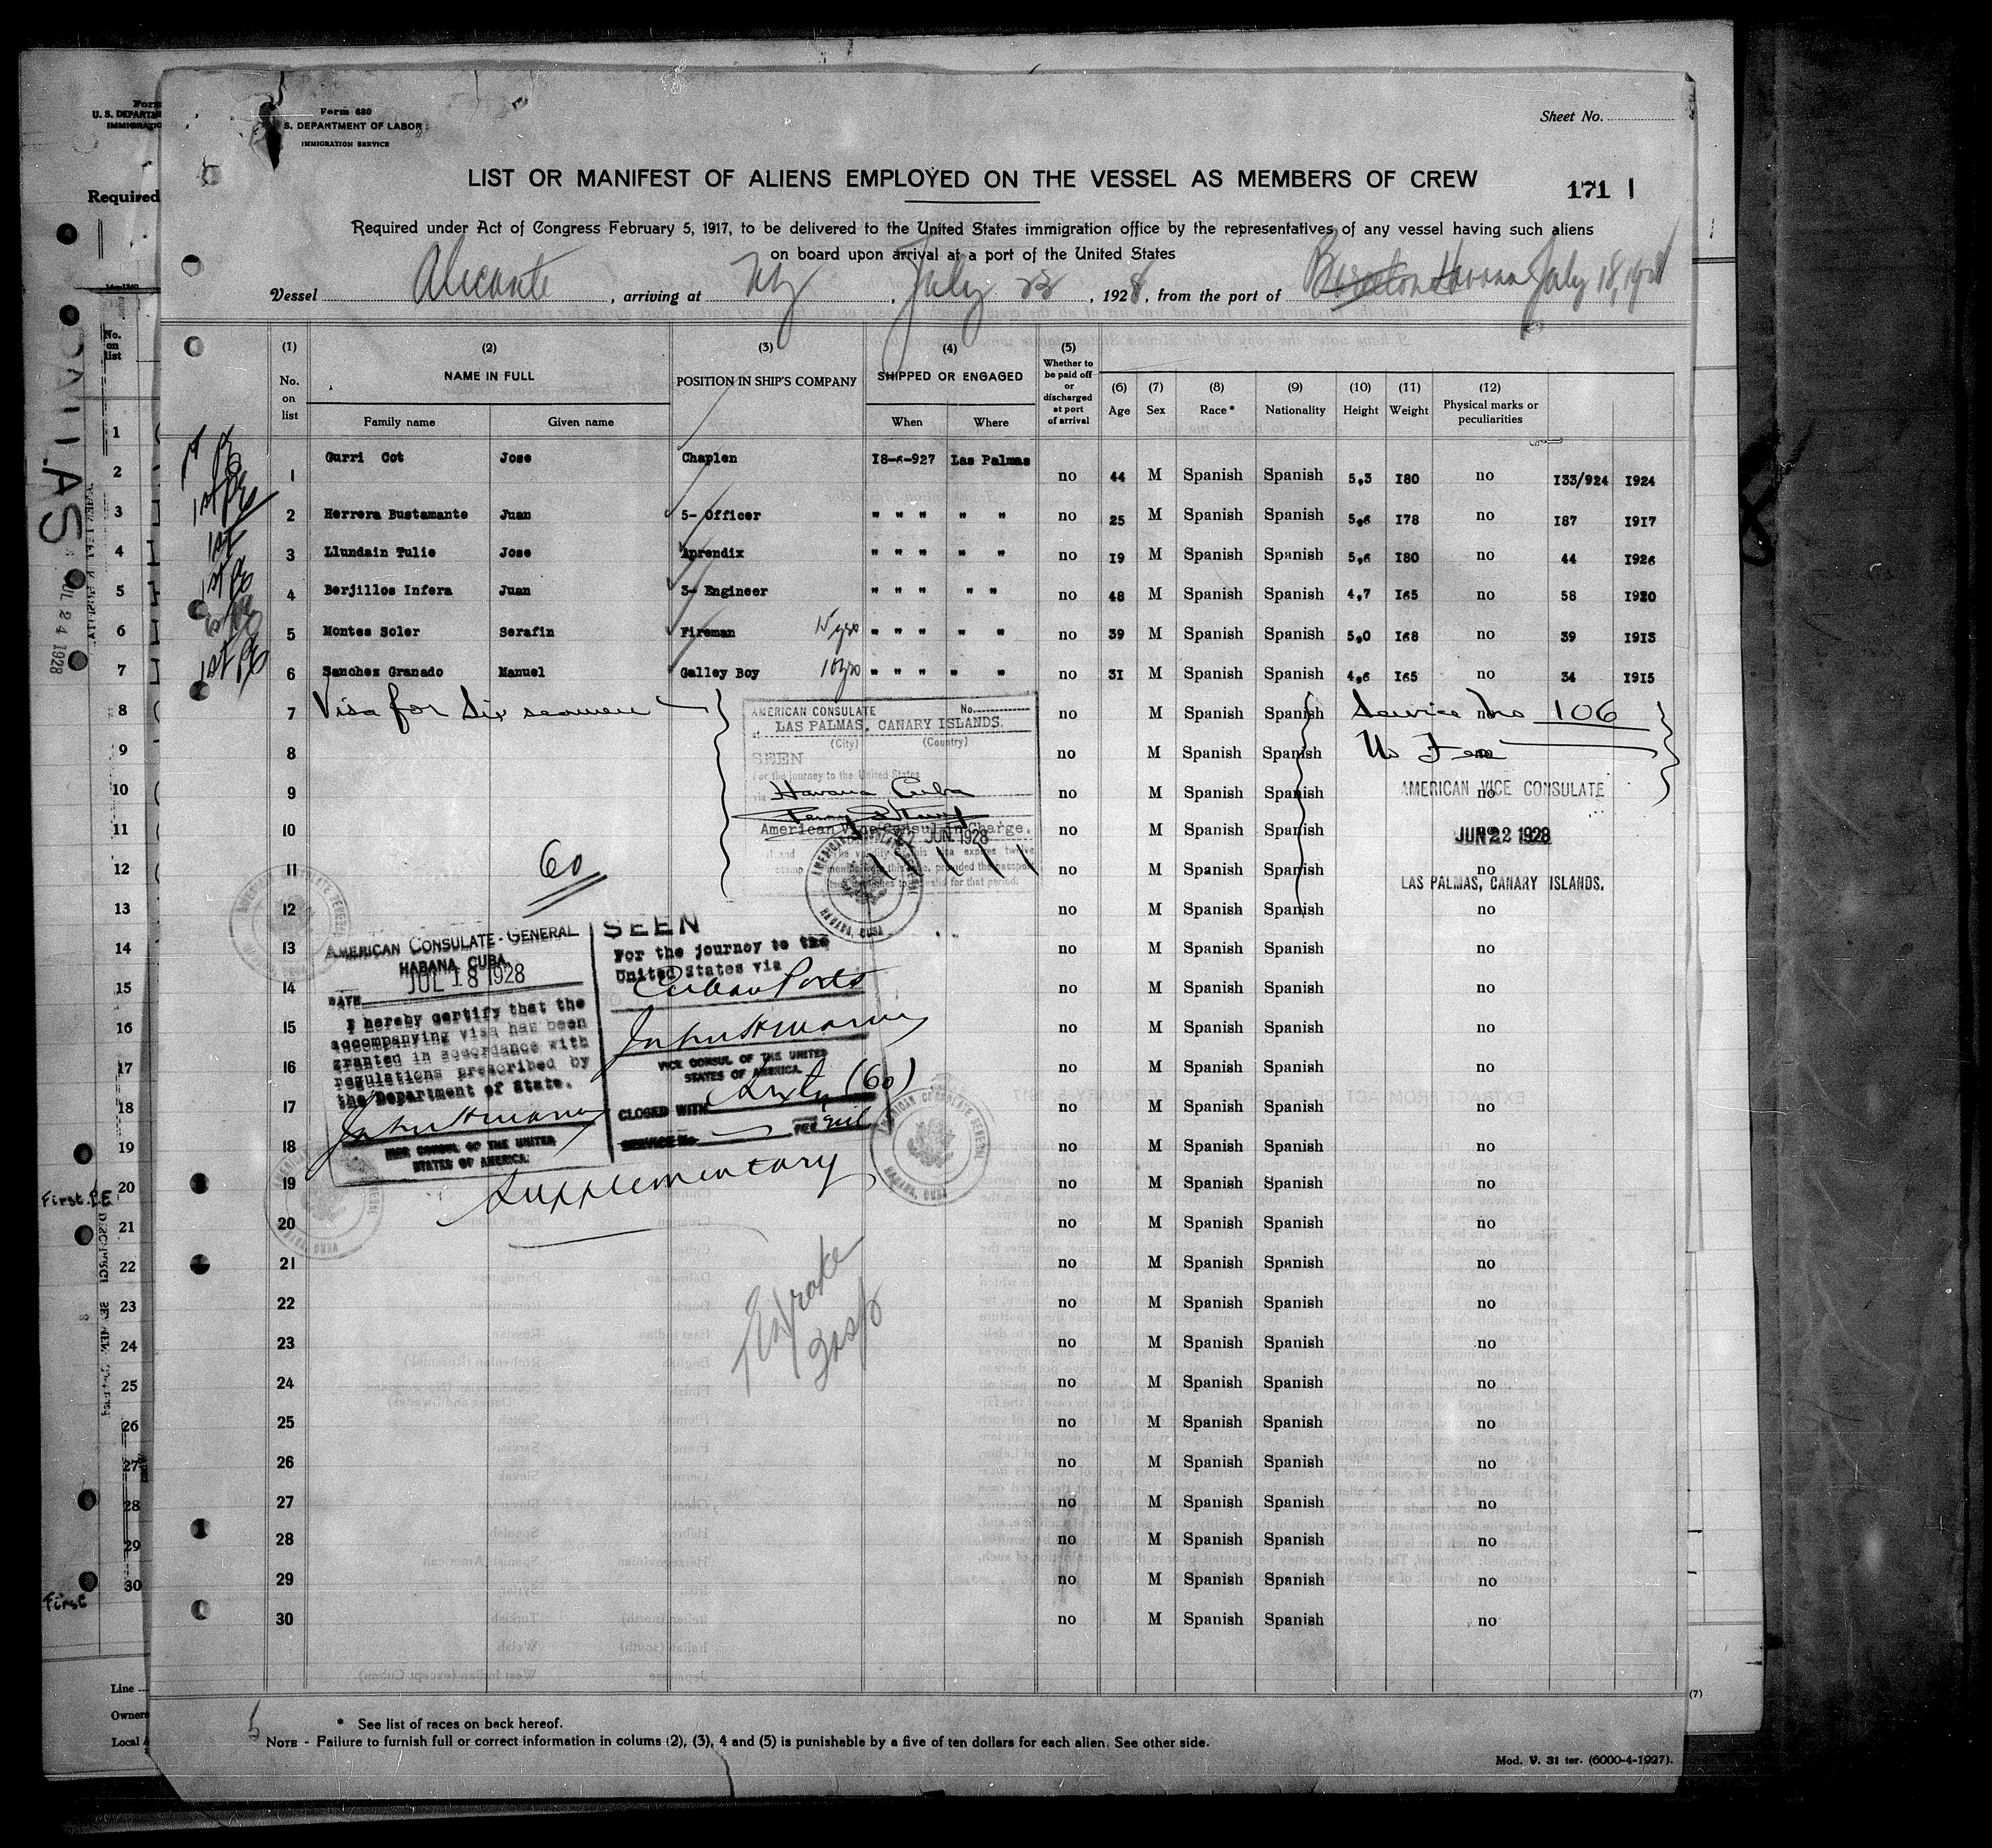 Form 680
S. DEPARTMENT OF LABOR
IMMIGRATION SERVICE
Sheet No.
LIST OR MANIFEST OF ALIENS EMPLOYED ON THE VESSEL AS MEMBERS OF CREW
171
Required under Act of Congress February 5, 1917, to be delivered to the United States immigration office by the representatives of any vessel having such aliens
on board upon arrival at a port of the United States
Vessel Alicante, arriving at NY, July 23, 1928, from the port of Havana July 18, 1928
(1) (2) (3) (4) (5) (6) (7) (8) (9) (10) (11) (12)
No. on list NAME IN FULL POSITION IN SHIP'S COMPANY SHIPPED OR ENGAGED Whether to be paid off or discharged at port of arrival Age Sex Race* Nationality Height Weight Physical marks or peculiarities
Family name Given name When Where
1 Gurri Cot Jose Chaplen 18-6-927 Las Palmas no 44 M Spanish Spanish 5,3 180 no 133/924 1924
2 Herrera Bustamante Juan 5- Officer " " " " " no 25 M Spanish Spanish 5,6 178 no 187 1917
3 Llundain Tulie Jose Aprendix " " " " " no 19 M Spanish Spanish 5,6 180 no 44 1926
4 Berjillos Infera Juan 3- Engineer " " " " " no 48 M Spanish Spanish 4,7 165 no 58 1920
5 Montes Soler Serafin Fireman 15 yrs " " " " " no 39 M Spanish Spanish 5,0 168 no 39 1913
6 Sanchez Granado Manuel Galley Boy 10 yrs " " " " " no 31 M Spanish Spanish 4,6 165 no 34 1915
7 Visa for Six seamen no M Spanish Spanish Service No 106
8 no M Spanish Spanish No Fee
9 no M Spanish Spanish no
10 no M Spanish Spanish no
11 no M Spanish Spanish no
12 no M Spanish Spanish no
13 no M Spanish Spanish no
14 no M Spanish Spanish no
15 no M Spanish Spanish no
16 no M Spanish Spanish no
17 no M Spanish Spanish no
18 no M Spanish Spanish no
19 no M Spanish Spanish no
20 no M Spanish Spanish no
21 no M Spanish Spanish no
22 no M Spanish Spanish no
23 no M Spanish Spanish no
24 no M Spanish Spanish no
25 no M Spanish Spanish no
26 no M Spanish Spanish no
27 no M Spanish Spanish no
28 no M Spanish Spanish no
29 no M Spanish Spanish no
30 no M Spanish Spanish no
AMERICAN CONSULATE No.
at LAS PALMAS, CANARY ISLANDS.
(City) (Country)
SEEN
For the journey to the United States
via Havana Cuba
American Vice Consul in Charge.
22 JUN 1928
AMERICAN VICE CONSULATE
JUN 22 1928
LAS PALMAS, CANARY ISLANDS.
60
AMERICAN CONSULATE-GENERAL
HABANA, CUBA.
DATE JUL 18 1928
I hereby certify that the
accompanying visa has been
granted in accordance with
regulations prescribed by
the Department of State.
VICE CONSUL OF THE UNITED
STATES OF AMERICA.
SEEN
For the journey to the
United States via
Cuban Ports
VICE CONSUL OF THE UNITED
STATES OF AMERICA.
CLOSED WITH Sixty (60)
SERVICE No. FEE nil
AMERICAN CONSULATE GENERAL
HABANA, CUBA
Supplementary
* See list of races on back hereof.
NOTE - Failure to furnish full or correct information in colums (2), (3), 4 and (5) is punishable by a five of ten dollars for each alien. See other side.
Mod. V. 31 ter. (6000-4-1927).
Form
U. S. DEPARTM
IMMIGRATIO
Required
No. on list
1
2
3
4
5
6
7
8
9
10
11
12
13
14
15
16
17
18
19
20
21
22
23
24
25
26
27
28
29
30
JUL 24 1928
First
Line
Owners
Local
(7)